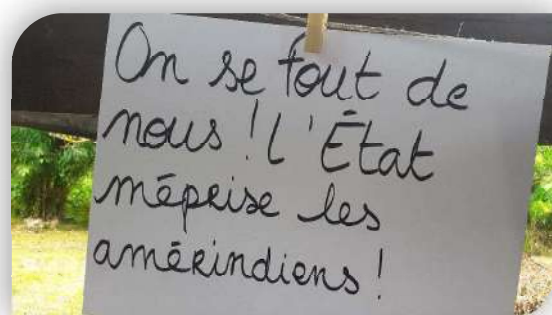 On se fout de
nous ! L'État
méprise les
amérindiens !